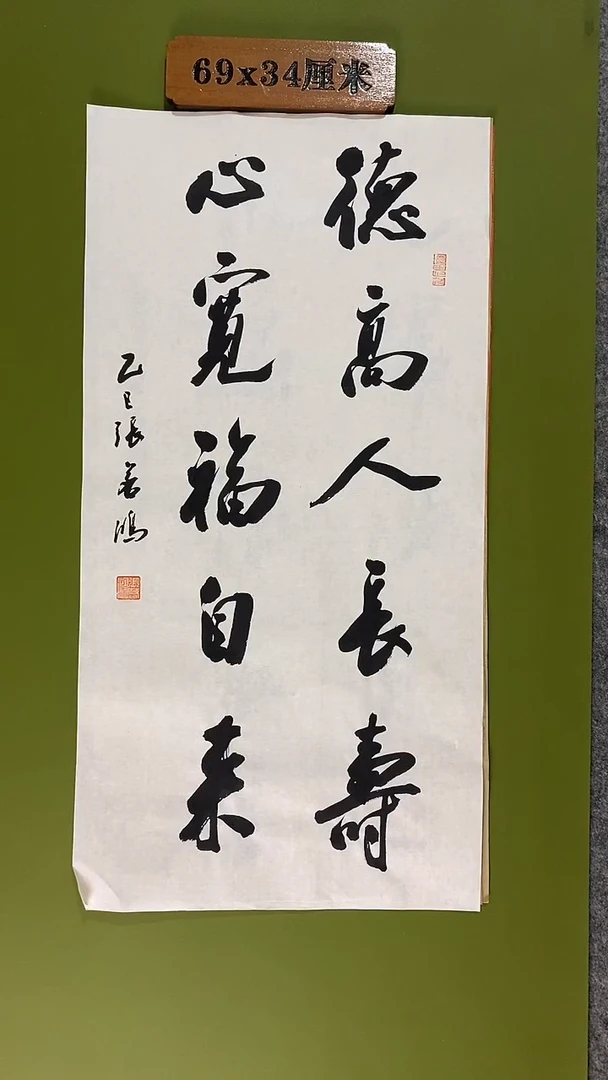 69x34厘米
德高人長壽
心寬福自来
乙巳張善鴻